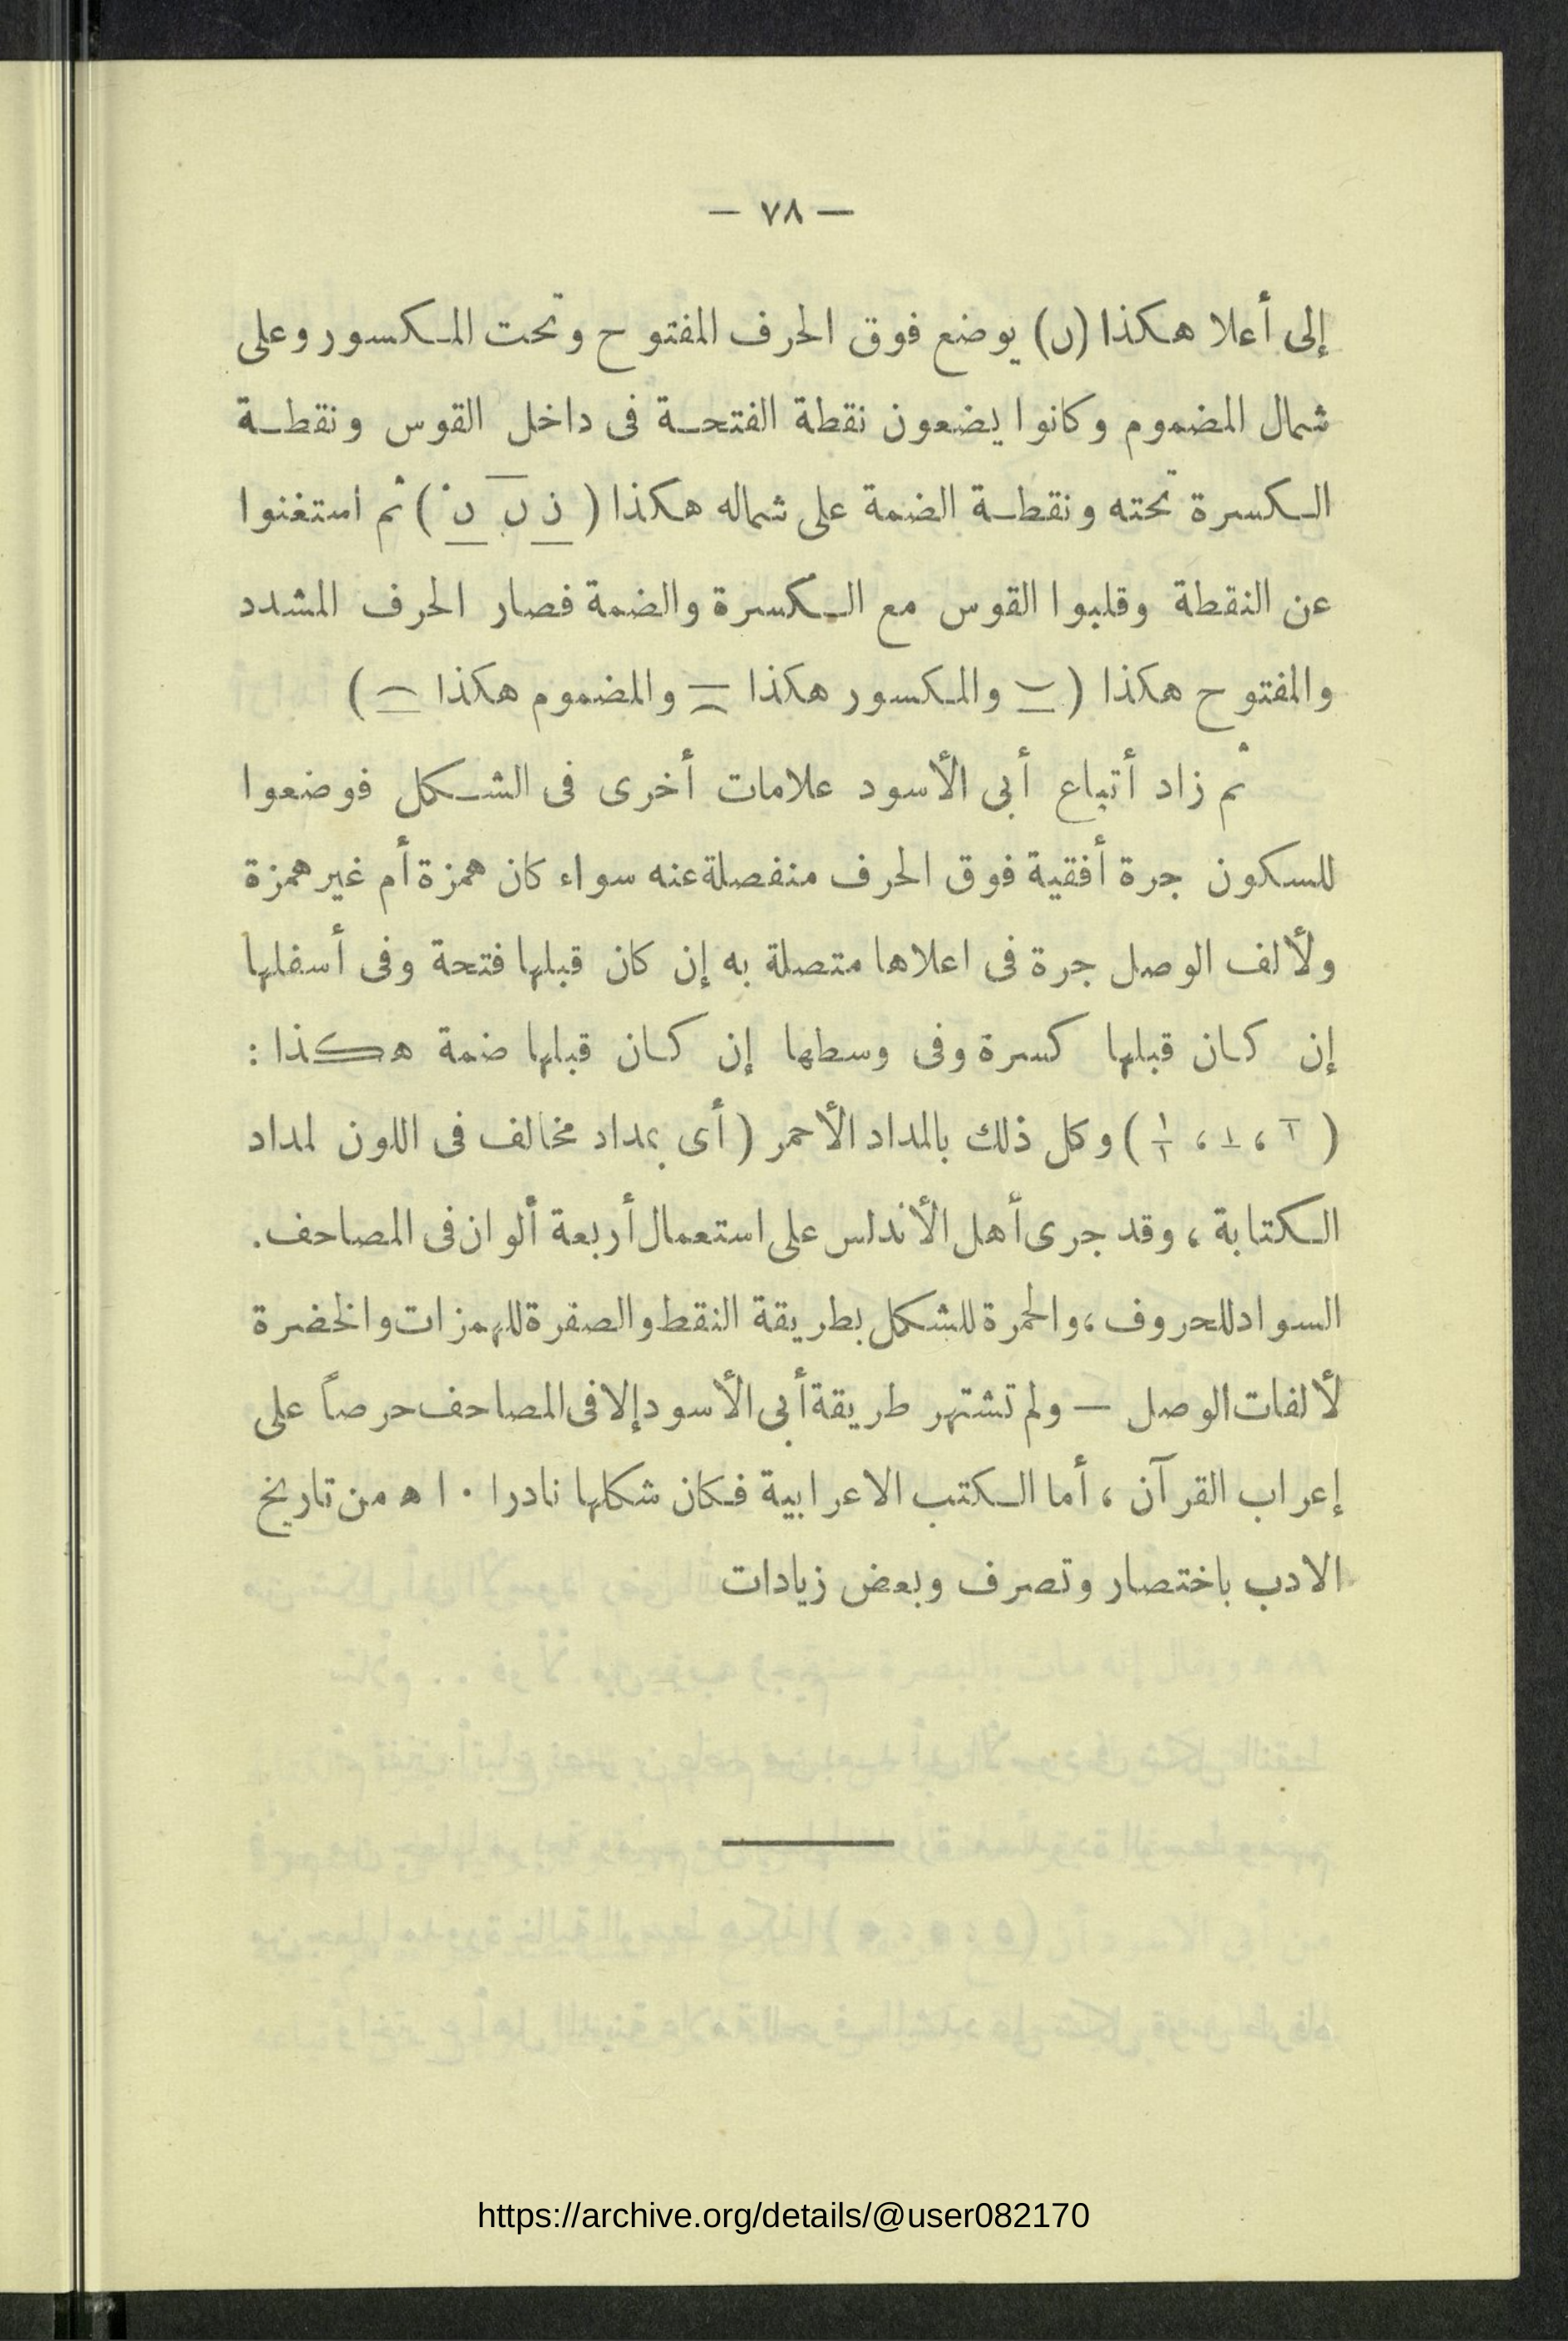 — ٧٨ —
إلى أعلا هكذا (ں) يوضع فوق الحرف المفتوح وتحت المكسور وعلى
شمال المضموم وكانوا يضعون نقطة الفتحة فى داخل القوس ونقطة
الكسرة تحته ونقطة الضمة على شماله هكذا ( ) ثم استغنوا
عن النقطة وقلبوا القوس مع الكسرة والضمة فصار الحرف المشدد
والمفتوح هكذا ( والمكسور هكذا والمضموم هكذا )
ثم زاد أتباع أبى الأسود علامات أخرى فى الشكل فوضعوا
للسكون جرة أفقية فوق الحرف منفصلة عنه سواء كان همزة أم غير همزة
ولألف الوصل جرة فى اعلاها متصلة به إن كان قبلها فتحة وفى أسفلها
إن كان قبلها كسرة وفى وسطها إن كان قبلها ضمة هكذا :
( ، ، ) وكل ذلك بالمداد الأحمر ( أى بمداد مخالف فى اللون لمداد
الكتابة ، وقد جرى أهل الأندلس على استعمال أربعة ألوان فى المصاحف.
السواد للحروف ، والحمرة للشكل بطريقة النقط والصفرة للهمزات والخضرة
لألفات الوصل — ولم تشتهر طريقة أبى الأسود إلا فى المصاحف حرصاً على
إعراب القرآن ، أما الكتب الاعرابية فكان شكلها نادرا ٠ اه من تاريخ
الادب باختصار وتصرف وبعض زيادات
https://archive.org/details/@user082170